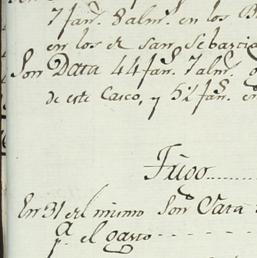 7 fan.s 8 alm.s en los B
en los de San Sebastia
Son Data 44 fan.s 7 alm.s
de este Casco, y 52 fan.s en
Tugo
En 31 del mismo Son Data
p.a el gasto